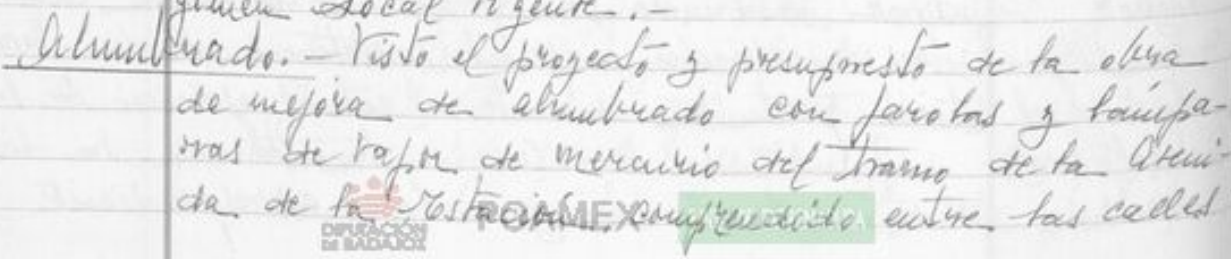 gimen Local vigente.-
Alumbrado.- Visto el proyecto y presupuesto de la obra
de mejora de alumbrado con farolas y lámpa-
ras de vapor de mercurio del tramo de la Aveni
da de la Estación comprendido entre las calles
DIPUTACIÓN
DE BADAJOZ
FOAMEX